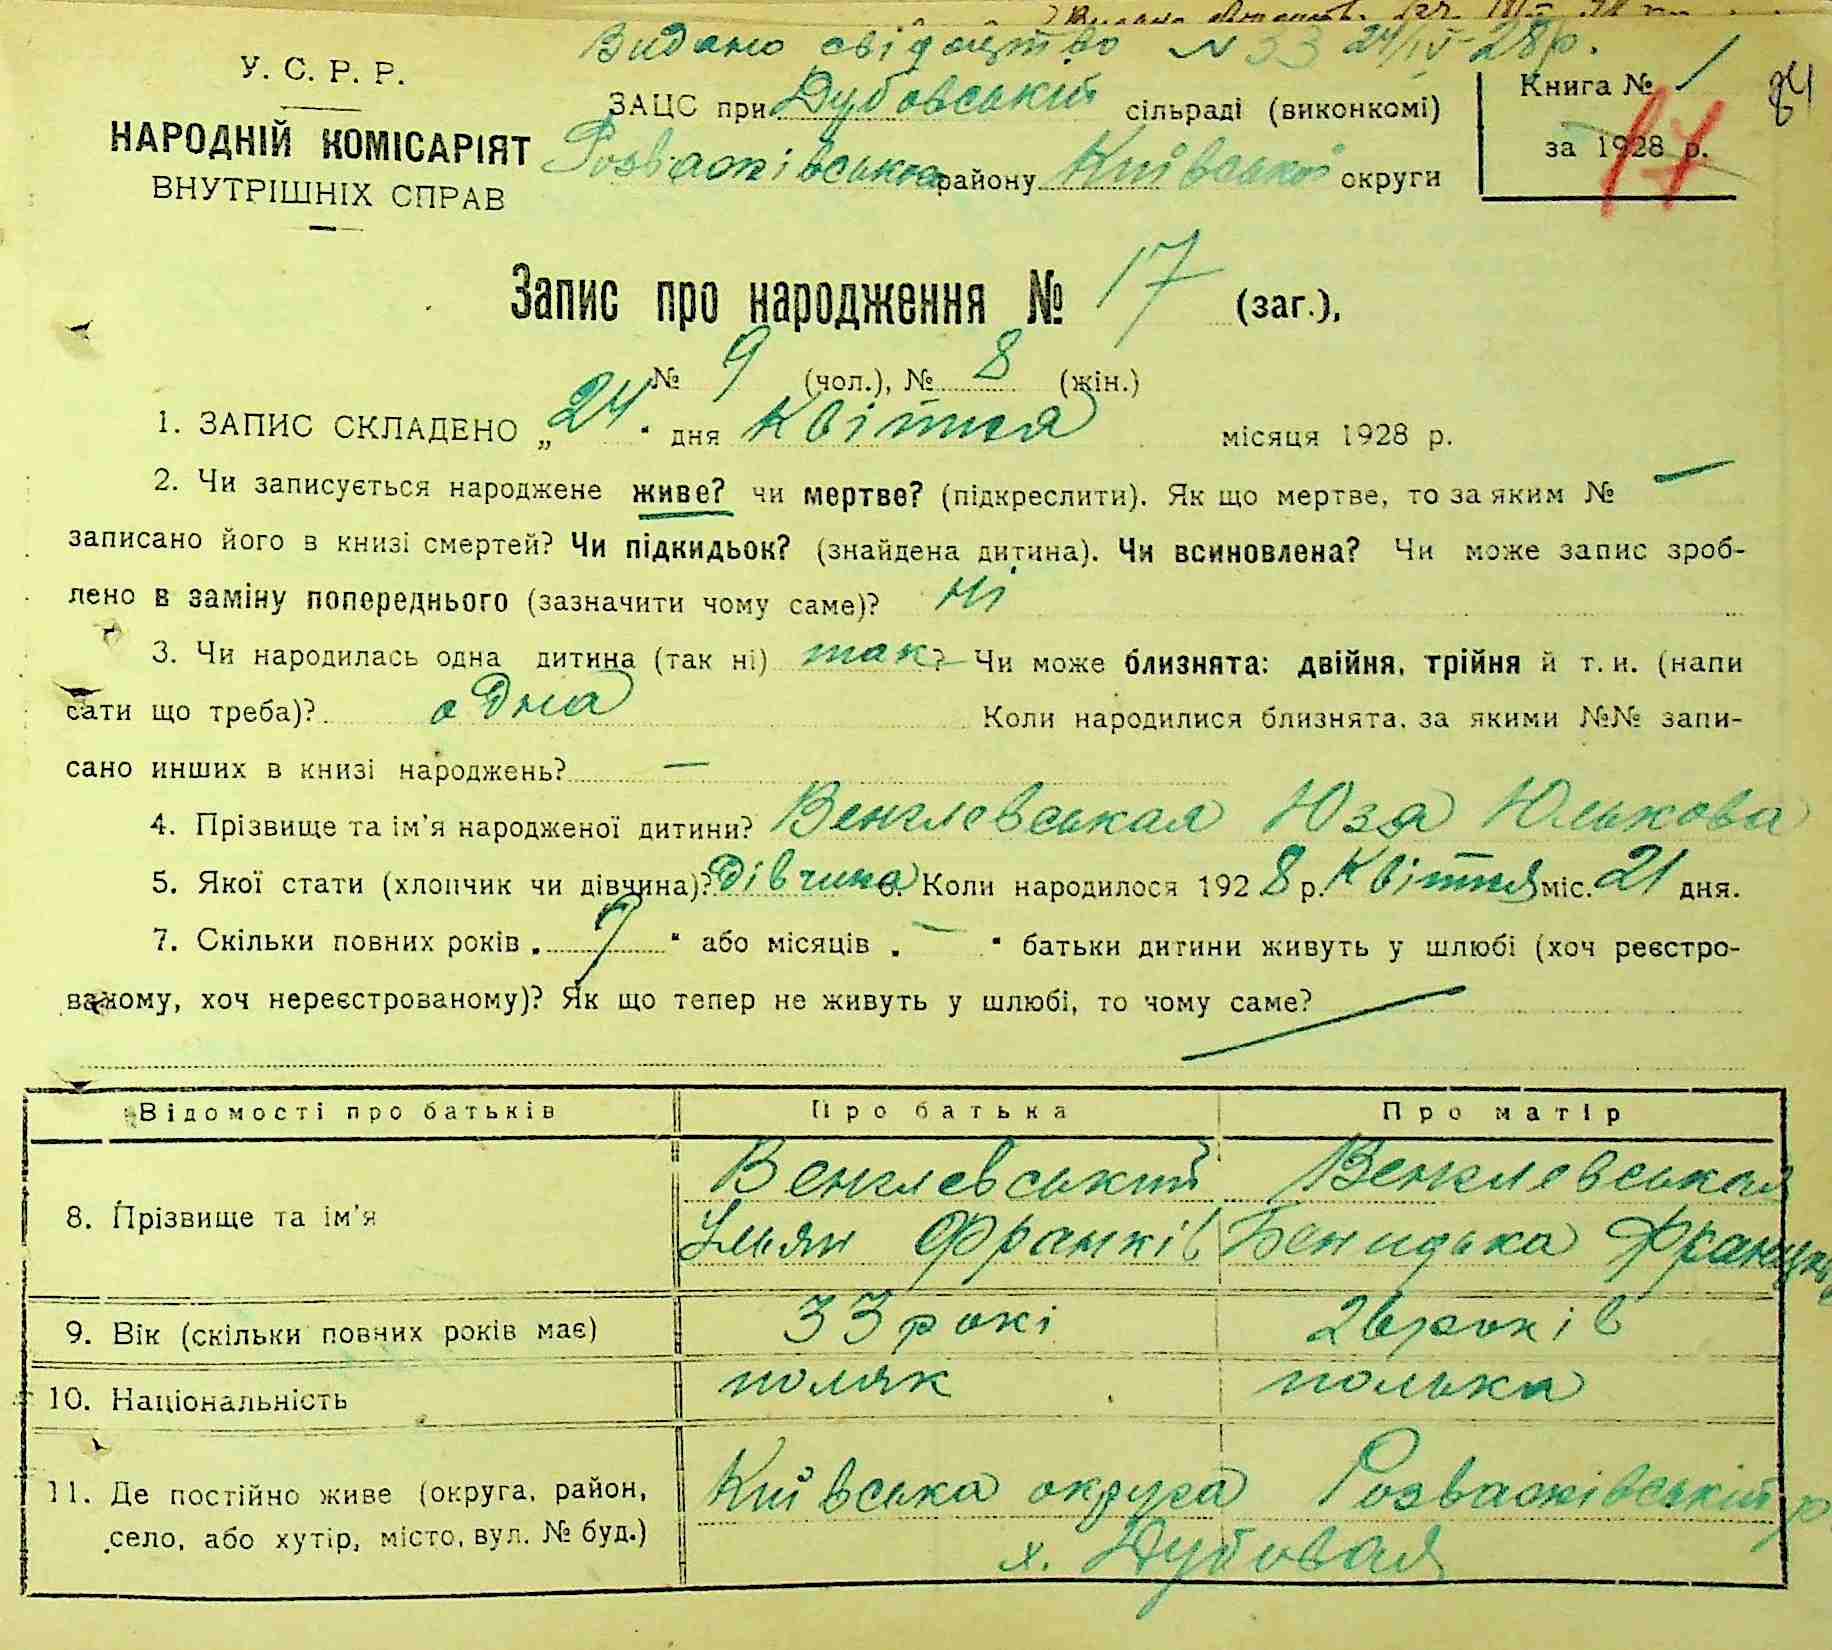 Видано свідоцтво N 33 24/IV-28р.
У. С. Р. Р.
НАРОДНІЙ КОМІСАРІЯТ
ВНУТРІШНІХ СПРАВ
ЗАЦС при Дубовський сільраді (виконкомі)
Розважівського району Київської округи
Книга № 1
за 1928 р.
17
84
Запис про народження № 17 (заг.),
№ 9 (чол.), № 8 (жін.)
1. ЗАПИС СКЛАДЕНО „24" дня Квітня місяця 1928 р.
2. Чи записується народжене живе? чи мертве? (підкреслити). Як що мертве, то за яким № —
записано його в книзі смертей? Чи підкидьок? (знайдена дитина). Чи всиновлена? Чи може запис зроб-
лено в заміну попереднього (зазначити чому саме)? Ні
3. Чи народилась одна дитина (так ні) так? Чи може близнята: двійня, трійня й т. и. (напи
сати що треба)? одна Коли народилися близнята, за якими №№ запи-
сано инших в книзі народжень? —
4. Прізвище та ім'я народженої дитини? Венглевськая Юзя Юлькова
5. Якої стати (хлопчик чи дівчина)? Дівчина 6. Коли народилося 1928 р. Квітня міс. 21 дня.
7. Скільки повних років „ 9 " або місяців „ — " батьки дитини живуть у шлюбі (хоч реєстро-
ваному, хоч нереєстрованому)? Як що тепер не живуть у шлюбі, то чому саме?
Відомості про батьків Про батька Про матір
8. Прізвище та ім'я Венглевський Венглевськая
Ульян Франків Бенидька
9. Вік (скільки повних років має) 33 рокі 26 років
10. Національність поляк полька
11. Де постійно живе (округа, район, село, або хутір, місто, вул. № буд.) Київська округа Розважівський р
х. Дубовая